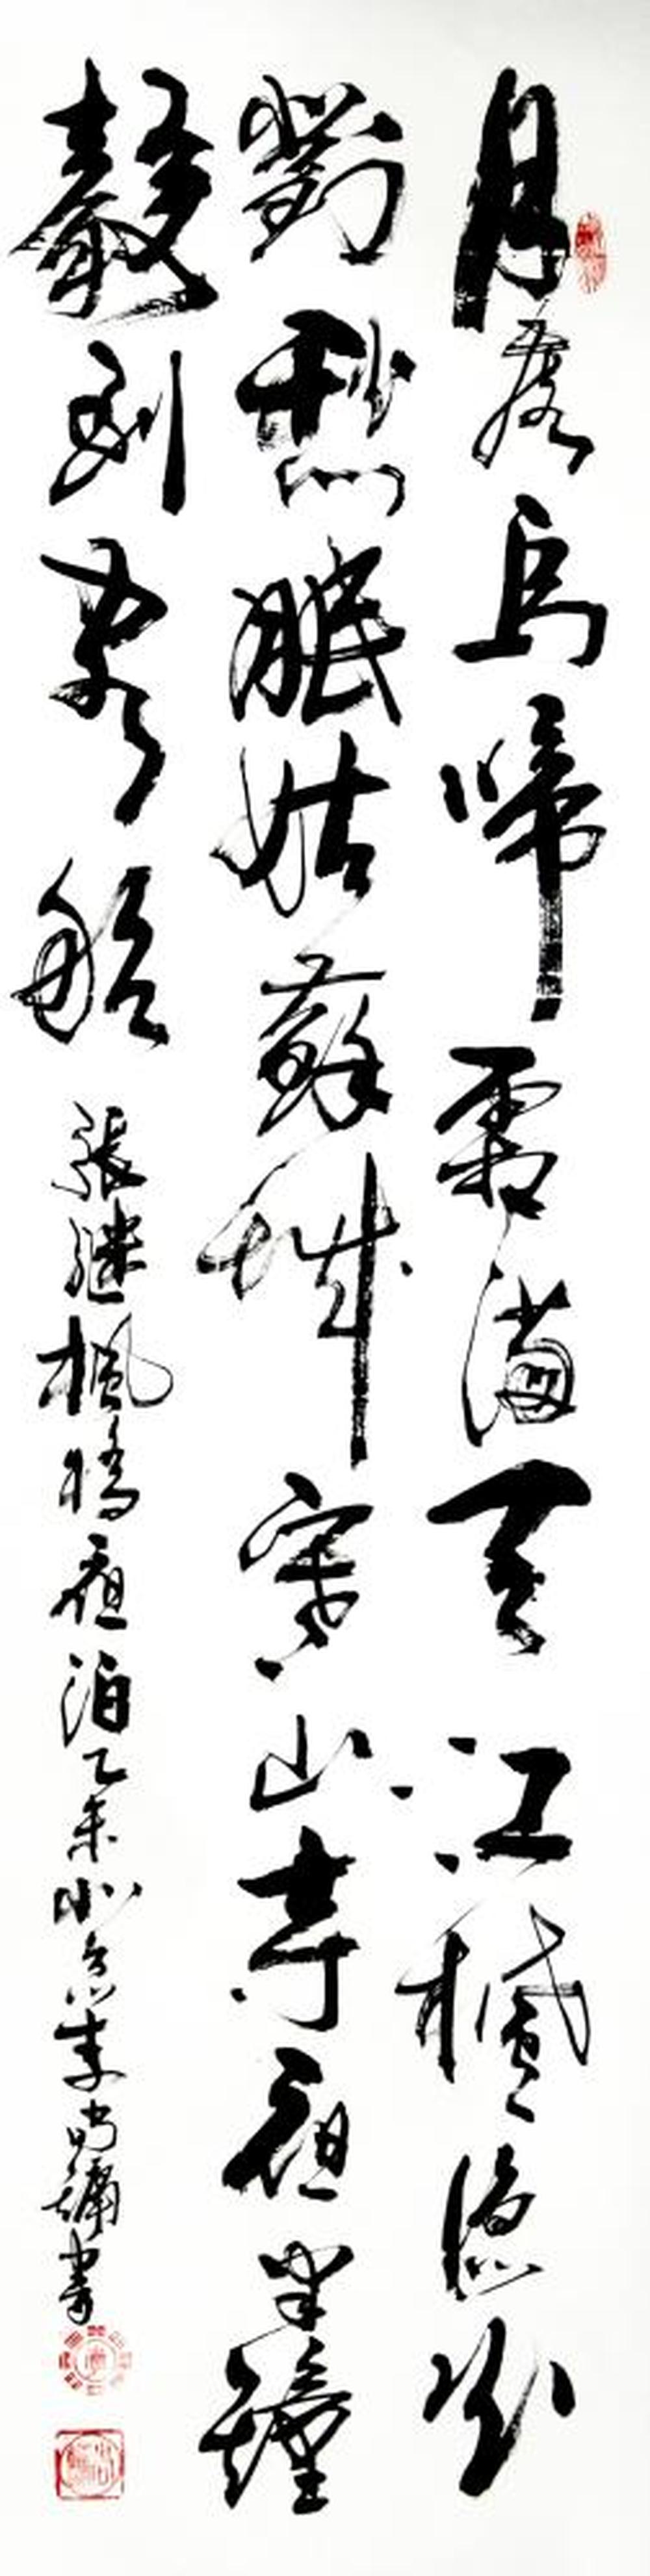 月落烏啼霜滿天江楓漁火
對愁眠姑蘇城寒山寺夜半鐘
聲到客船 張繼楓橋夜泊乙未李書